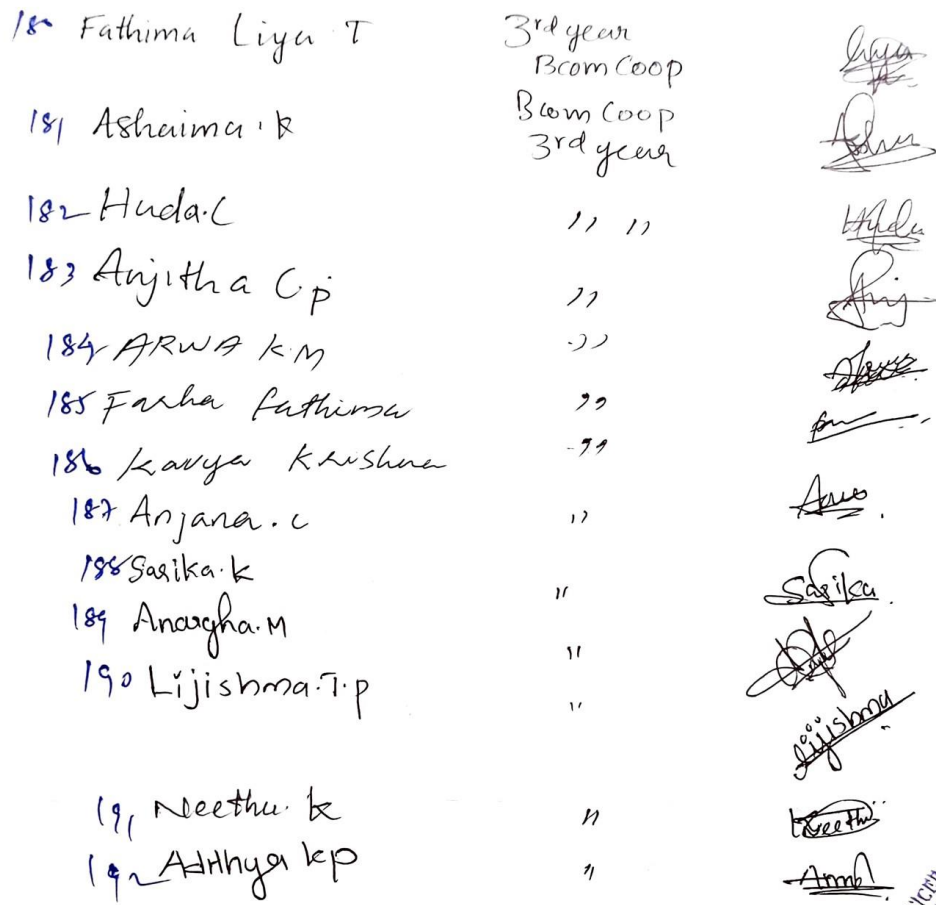 180 Fathima Liya T 3rd year
Bcom Coop
181 Ashaima . K Bcom Coop
3rd year
182 Huda.C ,, ,,
183 Anjitha C.p ,,
184 ARWA K.M ,,
185 Farha fathima ,,
186 Kavya Krishna ,,
187 Anjana . c ,,
188 Sarika.k Sarika
189 Anargha.M "
190 Lijishma.T.p "
"
Lijishma
191 Neethu. k " Neethu
192 Adithya kp "